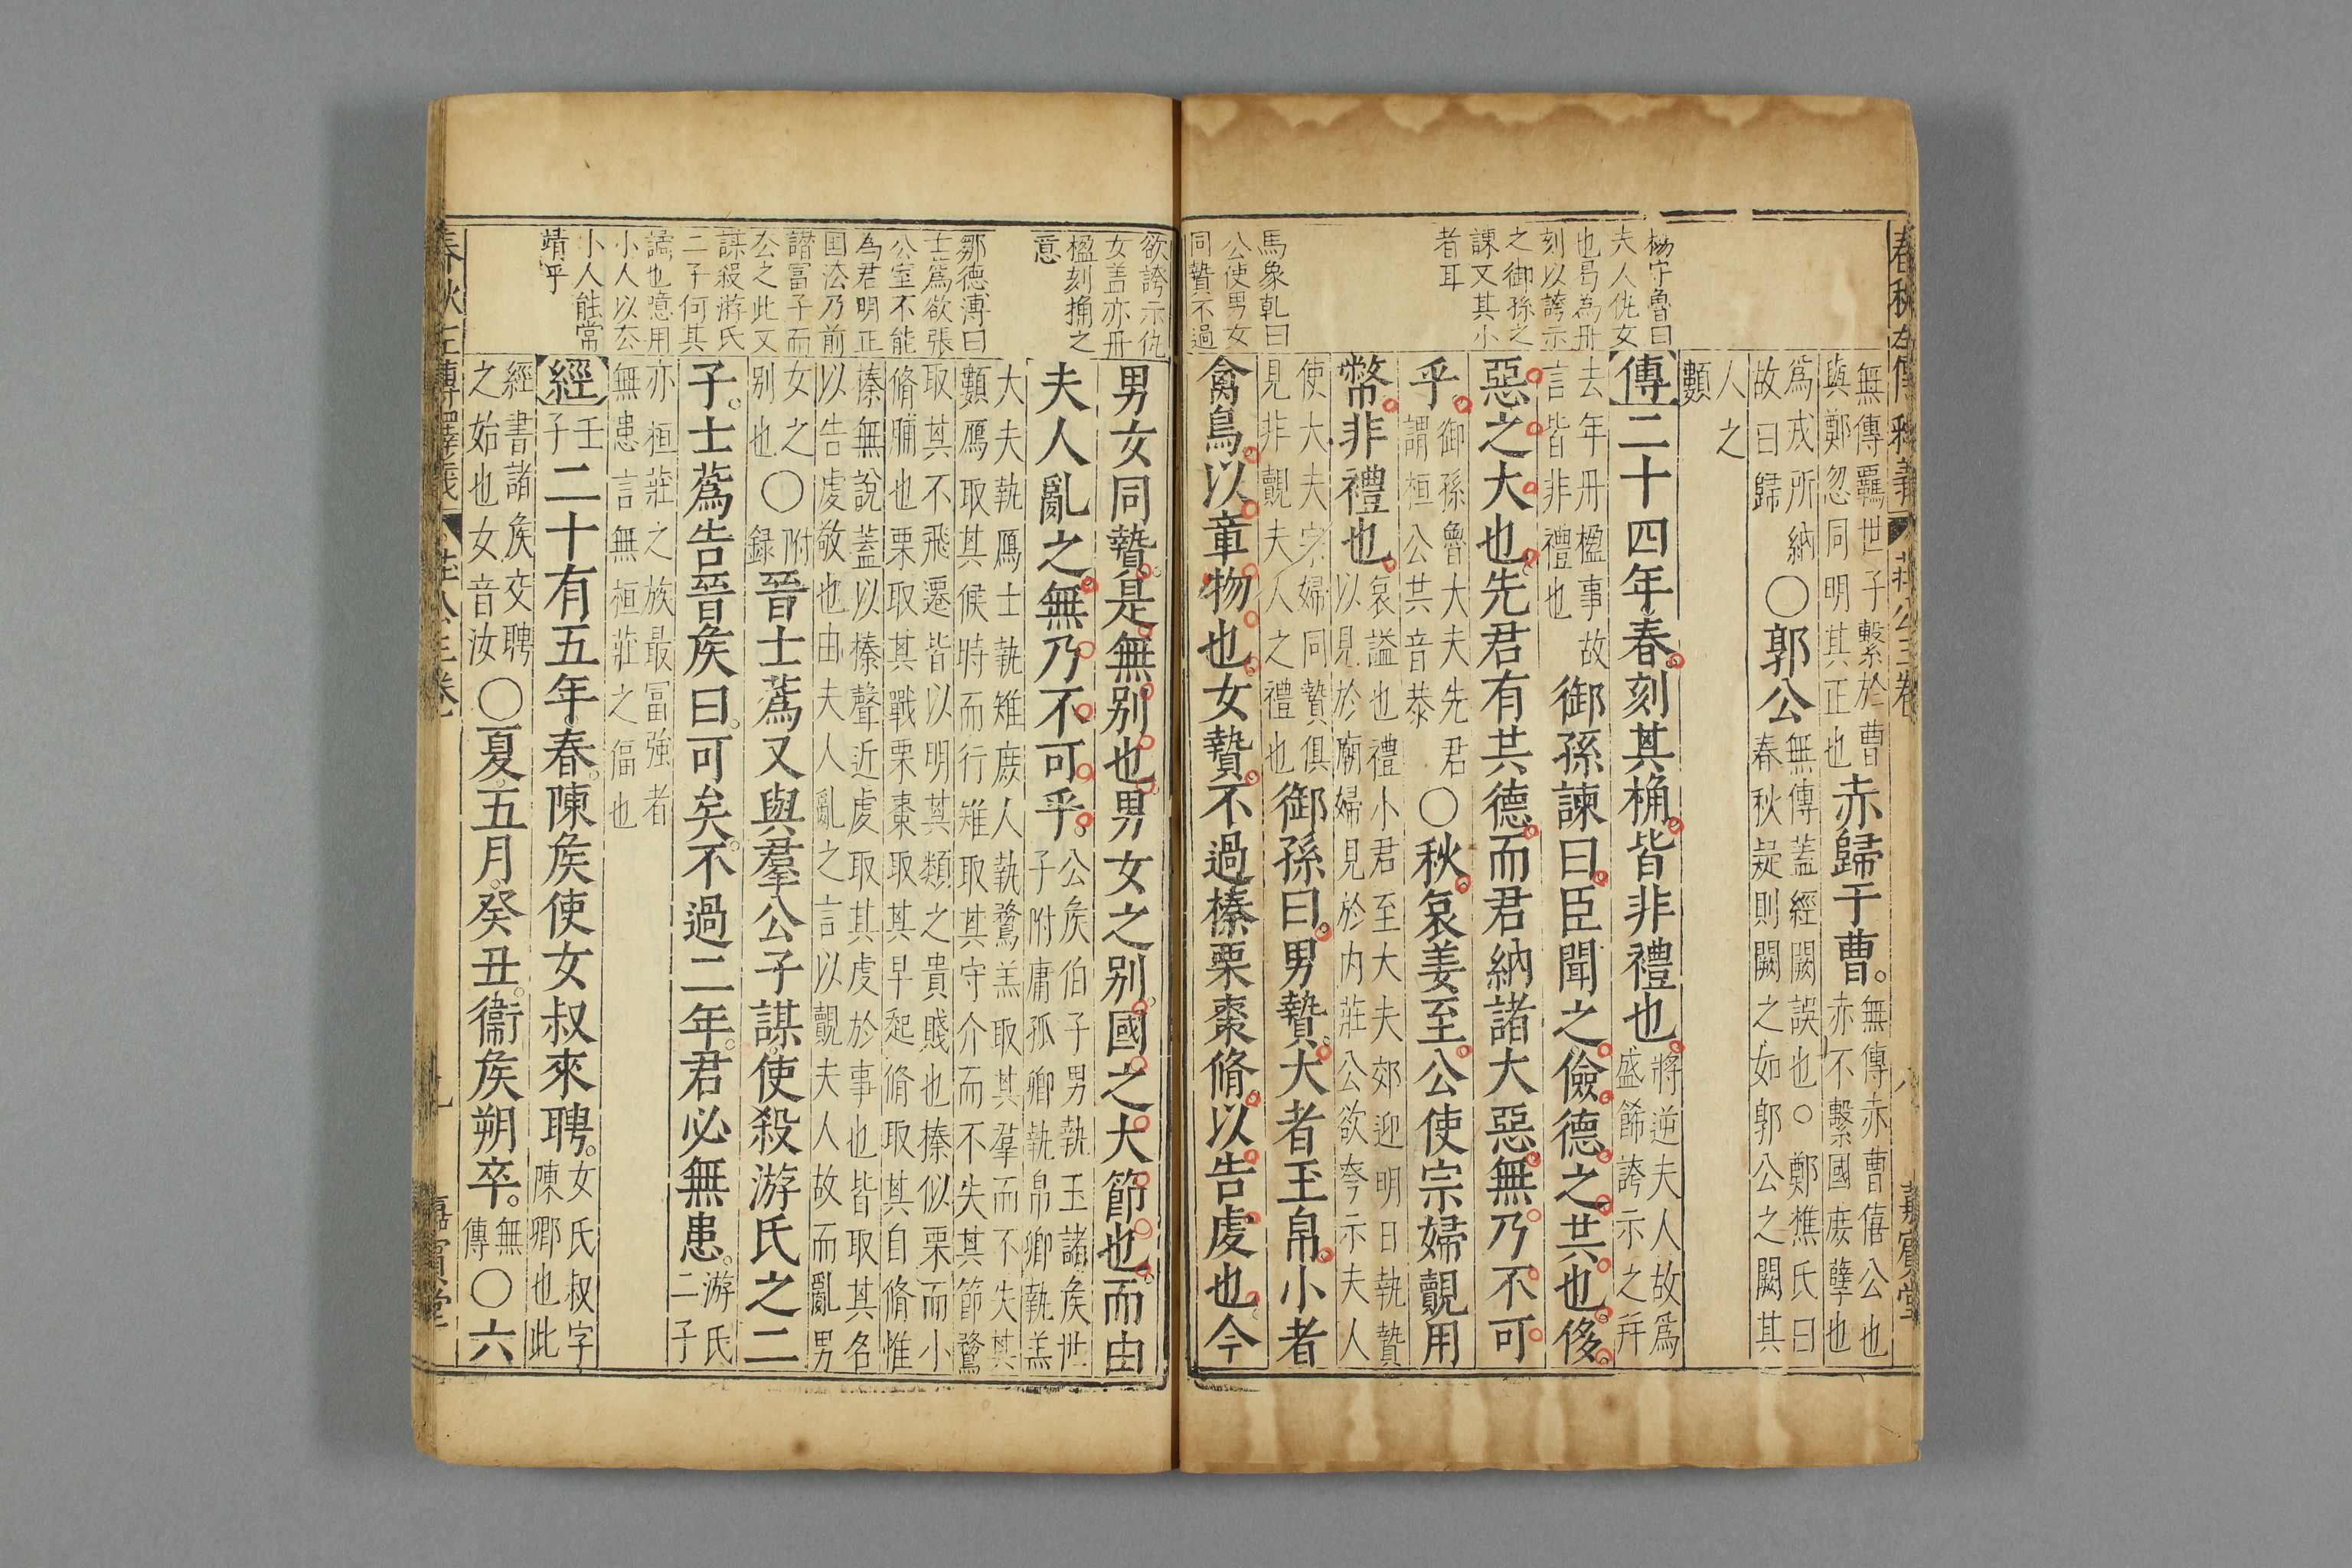 春秋左傳釋義 莊公三卷 八 嘉賓堂
楊守魯曰
夫人仇女
也曷為丹
刻以誇示
之御孫之
諫又其小
者耳
馬象乾曰
公使男女
同贄不過
無傳羈世子繫於曹與鄭忽同明其正也赤歸于曹。無傳赤曹僖公也赤不繫國庻孽也
爲戎所納故曰歸○郭公無傳蓋經闕誤也○鄭樵氏曰春秋疑則闕之如郭公之闕其
人之
類
傳二十四年春。刻其桷。皆非禮也。將逆夫人故爲盛飾誇示之幷
去年丹楹事故言皆非禮也御孫諫曰。臣聞之。儉。德之共也。侈。
惡之大也。先君有共德。而君納諸大惡。無乃不可
乎。御孫魯大夫先君謂桓公共音恭○秋。哀姜至。公使宗婦覿用
幣。非禮也。哀謚也禮小君至大夫郊迎明日執贄以見於廟婦見於内莊公欲夸示夫人
使大夫宗婦同贄俱見非覿夫人之禮也御孫曰。男贄。大者玉帛。小者
禽鳥。以章物也。女贄。不過榛栗棗脩。以告虔也。今
欲誇示仇
女盖亦丹
楹刻桷之
意
鄒德溥曰
士蔿欲張
公室不能
為君明正
国法乃前
譛富子而
公之此又
謀殺游氏
二子何其
譎也噫用
小人以厺
小人能常
靖乎
男女同贄。是無别也。男女之别。國之大節也。而由
夫人亂之。無乃不可乎。公矦伯子男執玉諸矦世子附庸孤卿執帛卿執羔
大夫執鴈士執雉庻人執鶩羔取其羣而不失其類鴈取其候時而行雉取其守介而不失其節鶩
取其不飛遷皆以明其類之貴賤也榛似栗而小脩脯也栗取其戰栗棗取其早起脩取其自脩惟
榛無說蓋以榛聲近虔取其虔於事也皆取其名以告虔敬也由夫人亂之言以覿夫人故而亂男
女之别也○附録晉士蔿又與羣公子謀。使殺游氏之二
子。士蔿告晉矦曰。可矣。不過二年。君必無患。游氏二子
亦桓莊之族最冨強者無患言無桓莊之偪也
經壬子二十有五年。春。陳矦使女叔來聘。女氏叔字陳卿也此
經書諸矦交聘之始也女音汝○夏。五月。癸丑。衞矦朔卒。無傳○六
春秋左傳釋義 莊公三卷 九 嘉賓堂